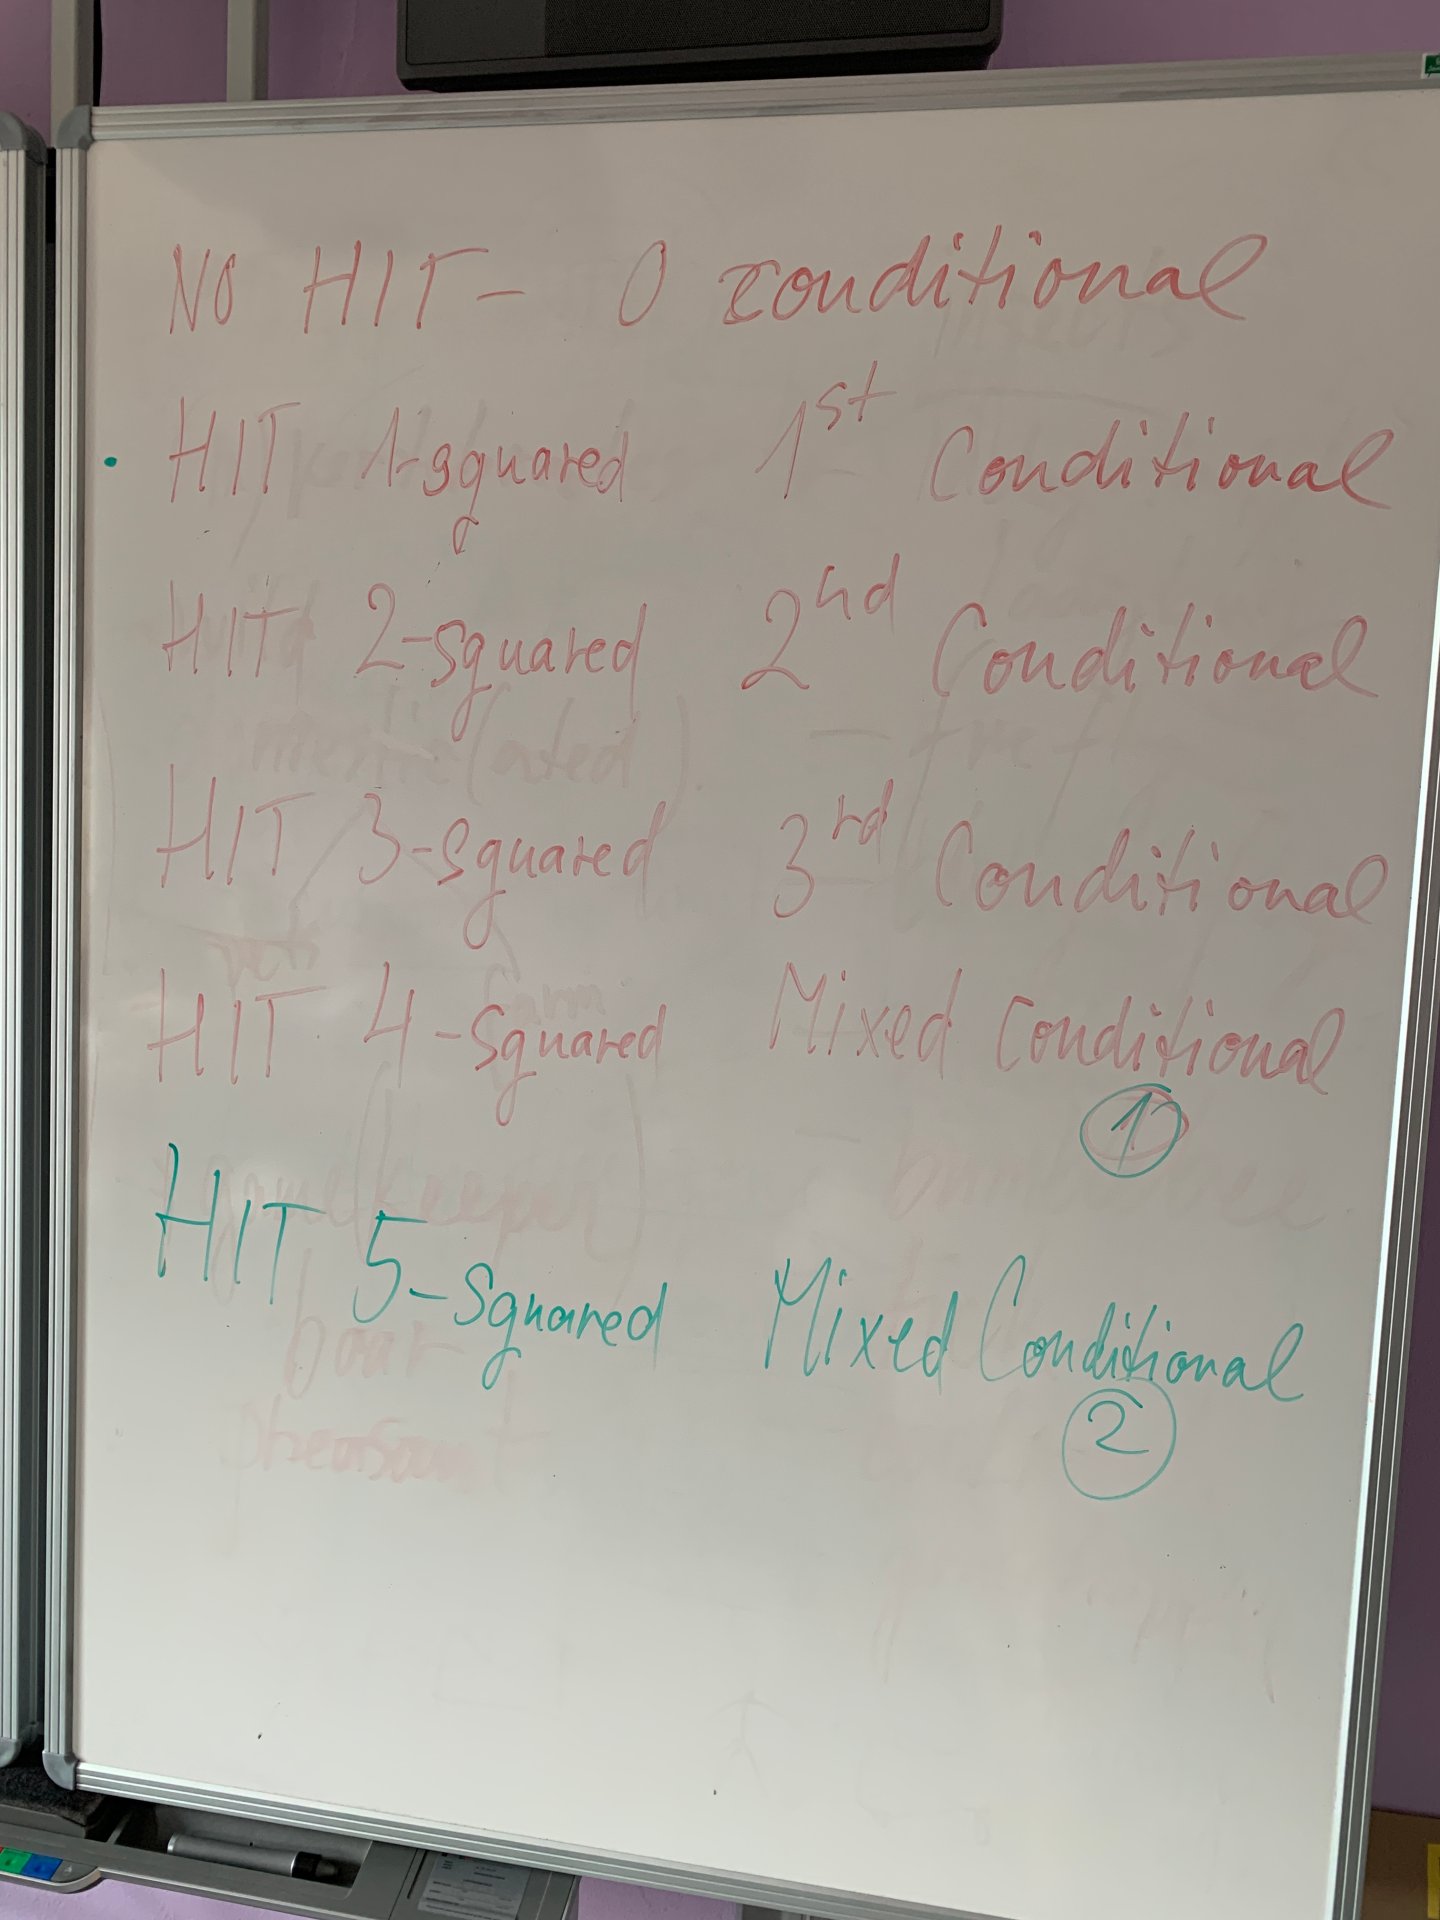 NO HIT - 0 conditional
HIT 1-squared 1st Conditional
HIT 2-squared 2nd Conditional
HIT 3-squared 3rd Conditional
HIT 4-squared Mixed Conditional
1
HIT 5-squared Mixed Conditional
2